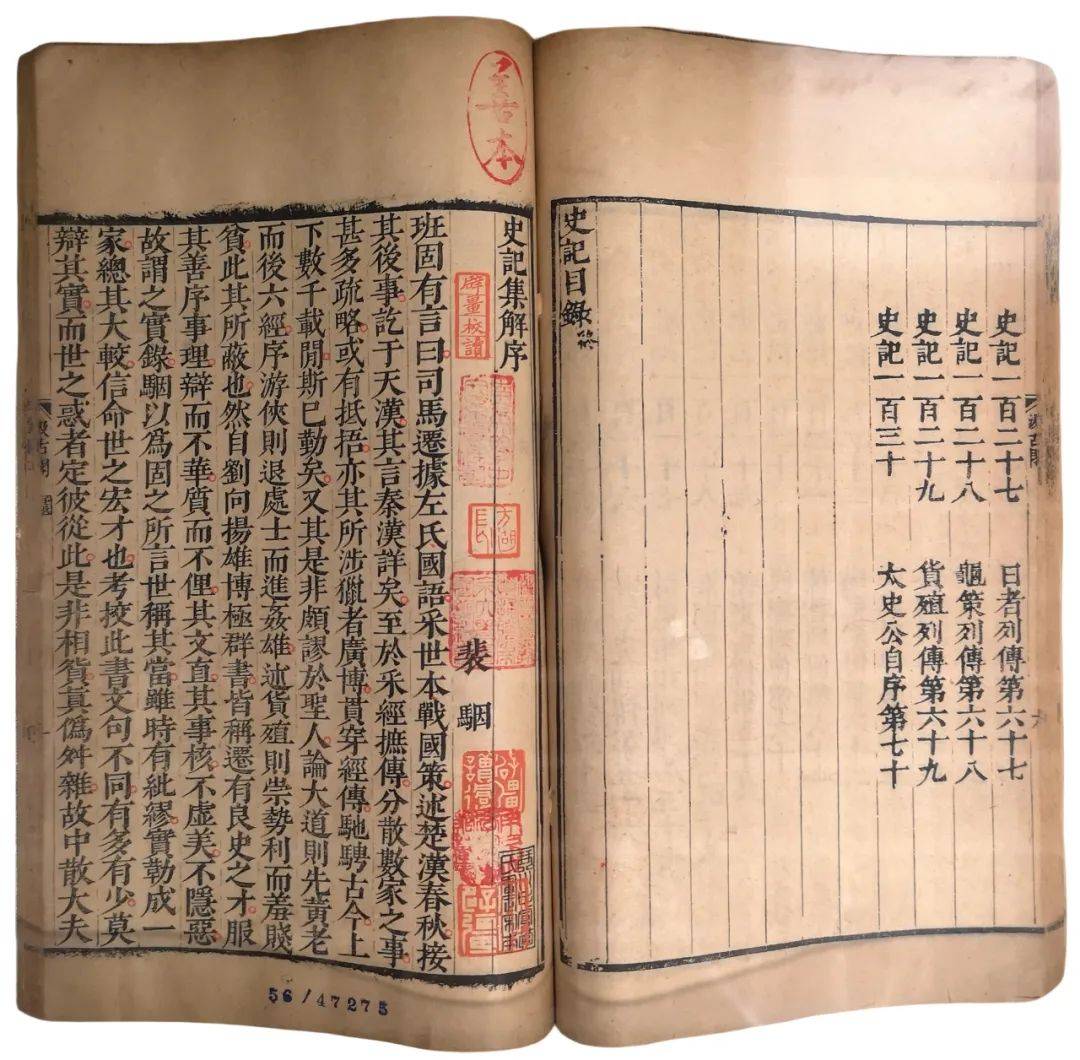 史記一百二十七 日者列傳第六十七
史記一百二十八 龜策列傳第六十八
史記一百二十九 貨殖列傳第六十九
史記一百三十 太史公自序第七十
史記目錄終
汲古閣
善本
史記集解序
裴駰
班固有言曰司馬遷據左氏國語采世本戰國策述楚漢春秋接
其後事訖于天漢其言秦漢詳矣至於采經摭傳分散數家之事
甚多疏略或有抵捂亦其所涉獵者廣博貫穿經傳馳騁古今上
下數千載閒斯已勤矣又其是非頗謬於聖人論大道則先黃老
而後六經序游俠則退處士而進姦雄述貨殖則崇勢利而羞賤
貧此其所蔽也然自劉向揚雄博極群書皆稱遷有良史之才服
其善序事理辯而不華質而不俚其文直其事核不虛美不隱惡
故謂之實錄駰以為固之所言世稱其當雖時有紕繆實勒成一
家總其大較信命世之宏才也考挍此書文句不同有多有少莫
辯其實而世之惑者定彼從此是非相貿真偽舛雜故中散大夫
56/47275